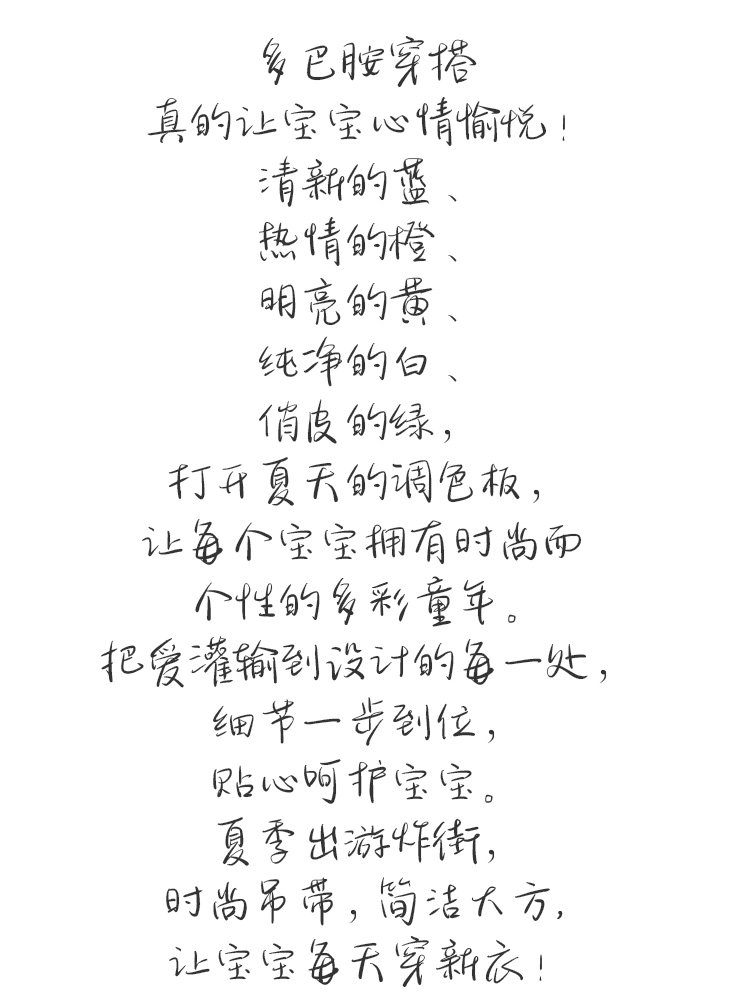 多巴胺穿搭
真的让宝宝心情愉悦！
清新的蓝、
热情的橙、
明亮的黄、
纯净的白、
俏皮的绿，
打开夏天的调色板，
让每个宝宝拥有时尚而
个性的多彩童年。
把爱灌输到设计的每一处，
细节一步到位，
贴心呵护宝宝。
夏季出游炸街，
时尚吊带，简洁大方，
让宝宝每天穿新衣！